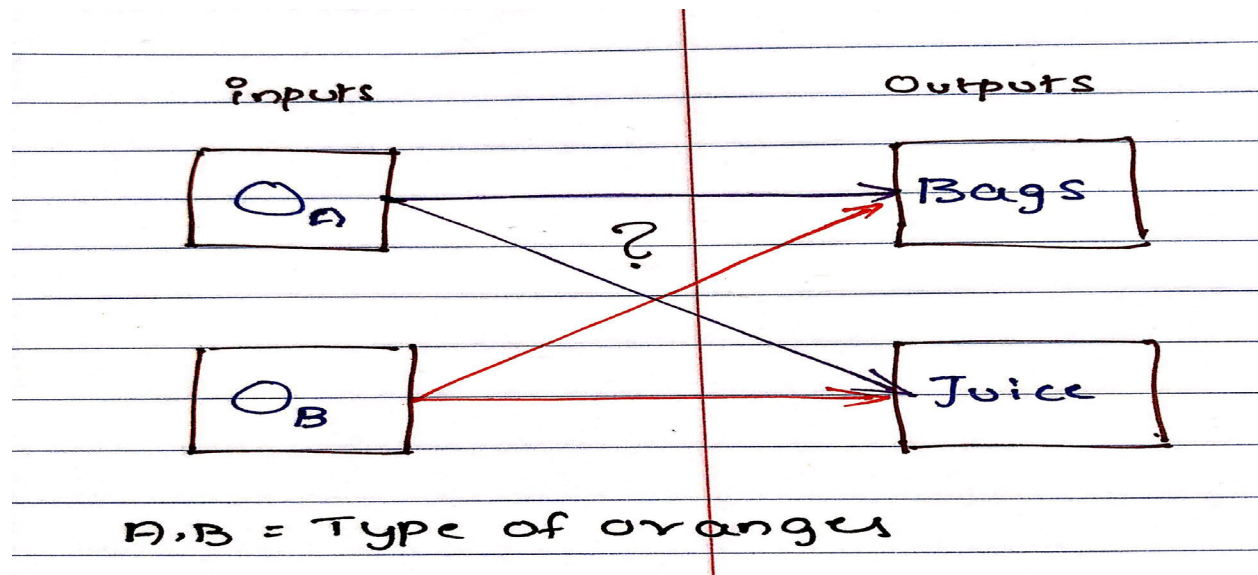 inputs Outputs
O_A Bags
?
O_B Juice
A,B = Type of oranges